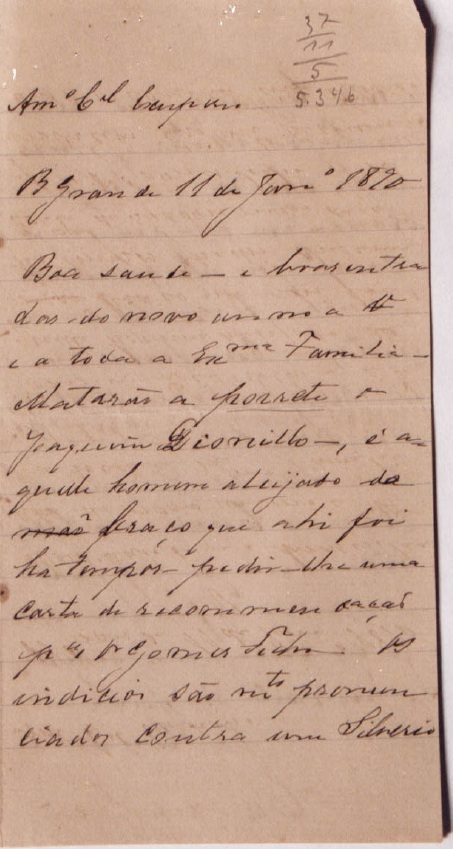 37
11
5
5.346
Amº Cel
B Grande 11 de Janrº 1890
Boa saude – e boas entra
das do novo anno a V
e a toda a Exma Familia –
Matarão a porrete o
Joaquim Dionillo –, é a-
quelle homem aleijado do
mão braço que ahi foi
ha tempos – pedir-lhe uma
carta de recommendação
pa o Dr Gomes Os
indicios são mto pronun
ciados contra um Silverio